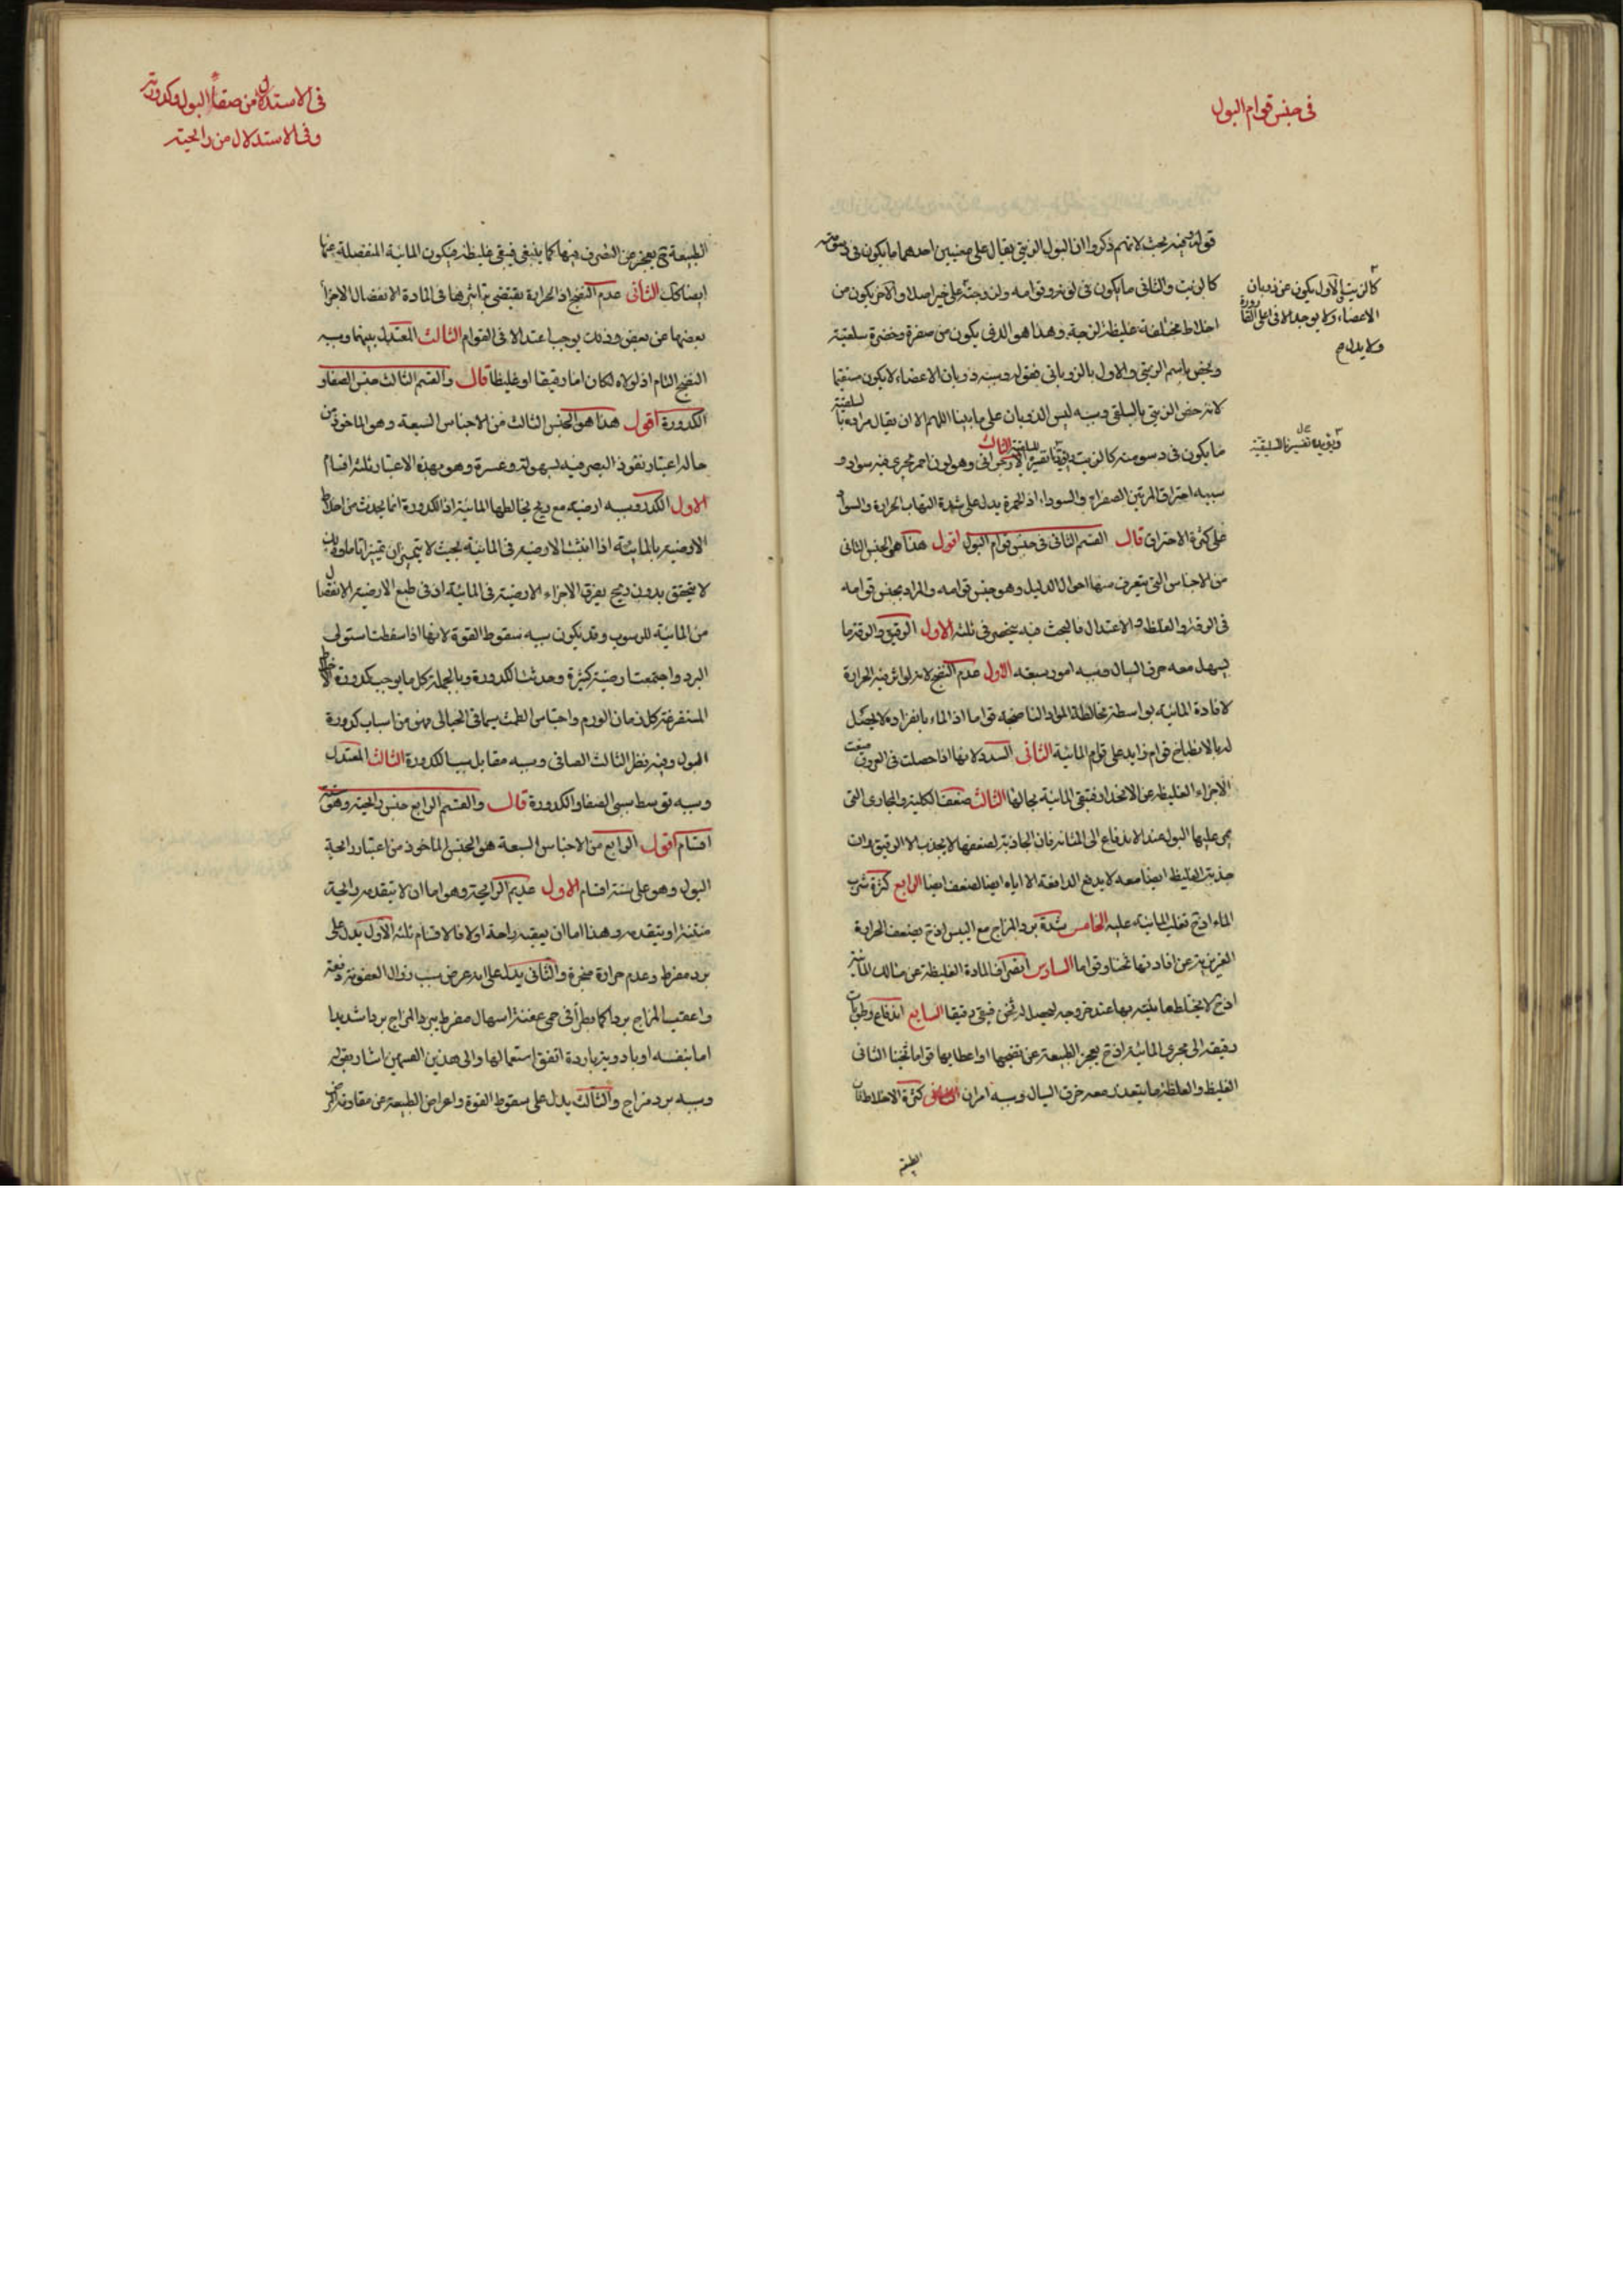 في جنس قوام البول
قوله فيه بحث لانهم ذكروا ان البول الزيتي يقال على معنيين احدهما ما يكون في دسومته
كالزيت والثاني ما يكون في لونه وقوامه ولزوجته على خير اصلا والآخر يكون من
اخلاط مختلفة غليظة لزجة وهذا هو الذي يكون من صفرة وخضرة سلقية
ويخص باسم الزيتي والاول بالذوباني فقوله وسببه ذوبان الاعضاء لا يكون مستقيما
لانه خص الزيتي بالسلقي وسببه ليس الذوبان على ما بينا اللهم الا ان يقال مراده بالسلقية
ما يكون في دسومته كالزيت الثالث الارجواني وهو لون احمر يجري فيه سواد و
سببه احتراق المرتين الصفراء والسوداء اذ الحمرة يدل على شدة التهاب الحرارة والسواد
على كثرة الاحتراق قال القسم الثاني في جنس قوام البول اقول هذا هو الجنس الثاني
من الاجناس التي يتعرف منها احوال الدليل وهو جنس قوامه والمراد بجنس قوامه
في الرقة والغلظ والاعتدال فالبحث فيه ينحصر في ثلثة الاول الرقيق والرقة ما
يسهل معه خرق السيال وسببه امور سبعة الاول عدم النضج لانه لو اثر فيه الحرارة
لافادة المائية بواسطة مخالطة المواد الناضجة قواما اذ الماء بانفراده لا يحصل
له بالانطباخ قوام زايد على قوام المائية الثاني السدد لانها اذا حصلت في العروق منعت
الاجزاء الغليظة عن الانحدار فتبقى المائية بحالها الثالث ضعف الكلية والمجاري التي
يمر عليها البول عند الاندفاع الى المثانة فان الجاذبة لضعفها لا يجذب الا الرقيق وان
جذبت الغليظ ايضا معه لا يدفع الدافعة الا اياه ايضا لضعف ايضا الرابع كثرة شرب
الماء اذ ح تغلب المائية عليه الخامس شدة برد المزاج مع اليبس اذ ح يضعف الحرارة
الغريزية عن افادتها ثخنا وقواما السادس انصراف المادة الغليظة عن مسالك المائية
اذ ح لا يخالطها مائية بها عند خروجه ليحصل له ثخن فيبقى رقيقا السابع اندفاع رطوبات
رقيقة الى مجرى المائية اذ ح يعجز الطبيعة عن نضجها واعطائها قواما ثخينا الثاني
الغليظ والغلظة ما يتعذر معه خرق السيال وسببه امران كثرة الاخلاط فان
الطبيعة
كالزيت الاول يكون عن ذوبان
الاعضاء ولا يوجد الا في اعلى القارورة
ولا يدل م
ويؤيده تفسيرنا السلقية
في الاستدلال من صفاء البول وكدورته
وفي الاستدلال من رايحته
الطبيعة ح يعجز عن التصرف فيها كما ينبغي فيبقى غليظة فيكون المائية المنفصلة عنها
ايضا كك الثاني عدم النضج اذ الحرارة يقتضي تاثيرها في المادة الانفصال الاجزاء
بعضها عن بعض وذلك يوجب اعتدالا في القوام الثالث المعتدل بينهما وسببه
النضج التام اذ لولاه لكان اما رقيقا او غليظا قال والقسم الثالث جنس الصفاء و
الكدورة اقول هذا هو الجنس الثالث من الاجناس السبعة وهو الماخوذ من
حاله اعتبار نفوذ البصر فيه بسهولة وعسرة وهو بهذه الاعتبار ثلثة اقسام
الاول الكدر وسببه ارضية مع ريح يخالطها المائية اذ الكدورة انما يحدث من اختلاط
الارضية بالمائية اذا انبثت الارضية في المائية بحيث لا يتميز ان تميزا تاما وذلك
لا يتحقق بدون ريح يفرق الاجزاء الارضية في المائية اذ في طبع الارضية الانفصال
من المائية للرسوب وقد يكون سببه سقوط القوة لانها اذا سقطت استولى
البرد واجتمعت ارضية كثيرة وحدثت الكدورة وبالجملة كل ما يوجب كدورة الاخلاط
المستفرغة كلذمان الورم واحتباس الطمث سيما في الحبالى فهو من اسباب كدورة
البول وفيه نظر الثالث الصافي وسببه مقابل سبب الكدورة الثالث المعتدل
وسببه توسط سببي الصفاء والكدورة قال والقسم الرابع جنس رايحته وهو ستة
اقسام اقول الرابع من الاجناس السبعة هو الجنس الماخوذ من اعتبار رايحة
البول وهو على ستة اقسام الاول عديم الرايحة وهو اما ان لا يتقدمه رايحة
منتنة او يتقدمه وهذا اما ان يعقبه راحة او لا فالاقسام ثلثة الاول يدل على
برد مفرط وعدم حرارة مبخرة والثاني يدل على انه عرض سبب زوال العفونة دفعة
واعقب المزاج بردا كما يطرأ في حمى عفنة اسهال مفرط يبرد المزاج بردا شديدا
اما بنفسه او بادوية باردة اتفق استعمالها والى هذين القسمين اشار بقوله
وسببه برد مزاج والثالث يدل على سقوط القوة واعراض الطبيعة عن مقاومة المرض